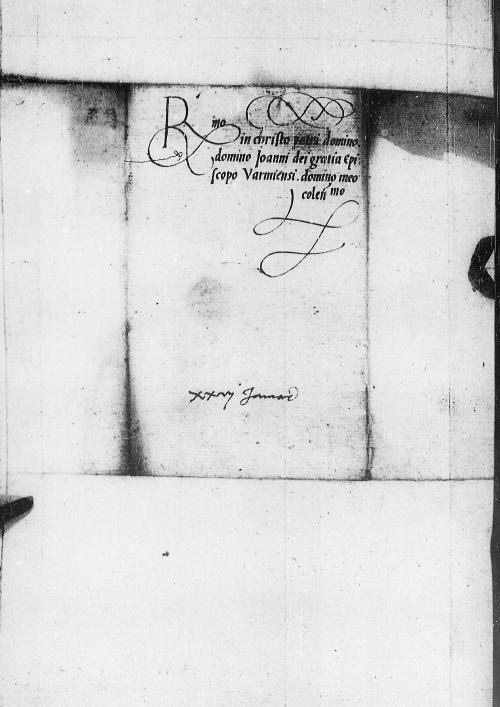 Rmo
in christo patri domino.
domino Joanni dei gratia Epi
scopo Varmiensi. domino meo
colenmo
xxvj Januar